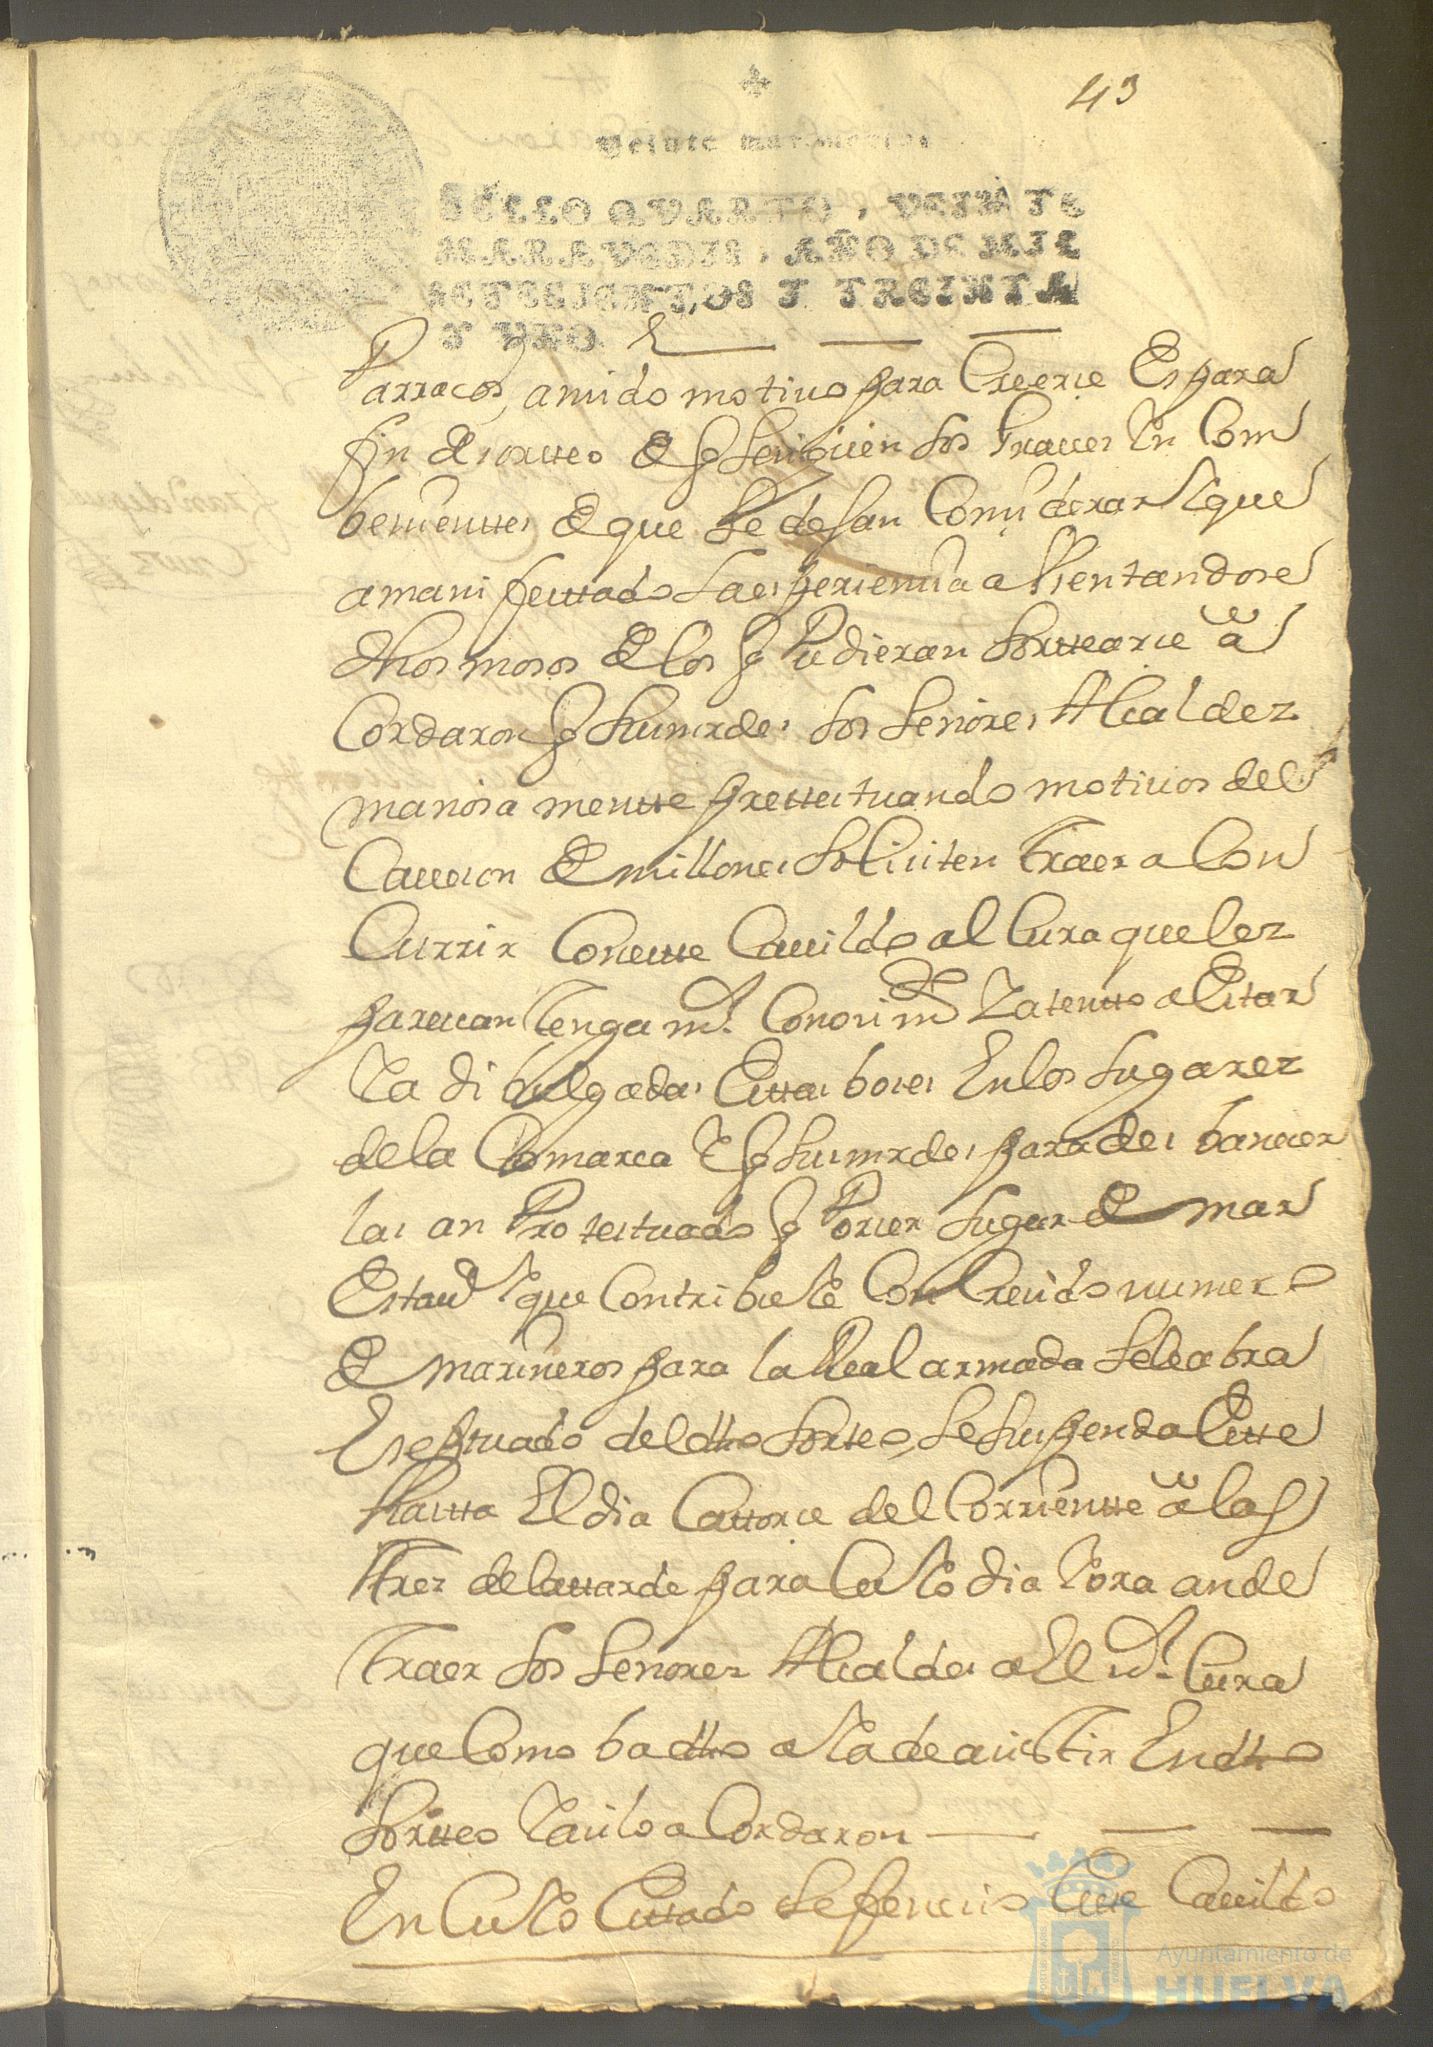 43
Veinte maravedis
SELLO QVARTO, VEINTE
MARAVEDIS, AÑO DE MIL
SETECIENTOS Y TREINTA
Y VNO
Parracos, a sido motivo para Creerse Es para
fin de sorteo de q se siguen los Graves In Com
benientes de que se dejan Considerar Y que
a manifestado la esperiencia ausentandose
dhos mosos de los q Pudieran sortearse a
Cordaron q sus mrdes los señores Alcaldez
mañosa mente pretestuando motivos del
Caveson de millones soliciten Traer a Con
Currir Coneste Cavildo al Cura que lez
parescan Tenga ms. Conosimto Y atento a Estar
Ya dibulgadas Estas boses En los lugarez
de la Comarca Y q sus mrdes para desbaneser
las an Protestuado q Por ser lugar de mar
Esta vª Y que Contribuie Con Cresido numero
de marineros para la Real armada sele abra
Eseptuado del dho sorteo, se suspenda Este
hasta El dia Catorse del Corriente a las
Trez de la tarde para Cuio dia Y ora an de
Traer los señorez Alcaldes a El ms. Cura
que Como ba dho a Ya de asistir En dho
sorteo Y asi lo a Cordaron
En Cuio Estado se fenesio Este Cavildo
Ayuntamiento de
HUELVA